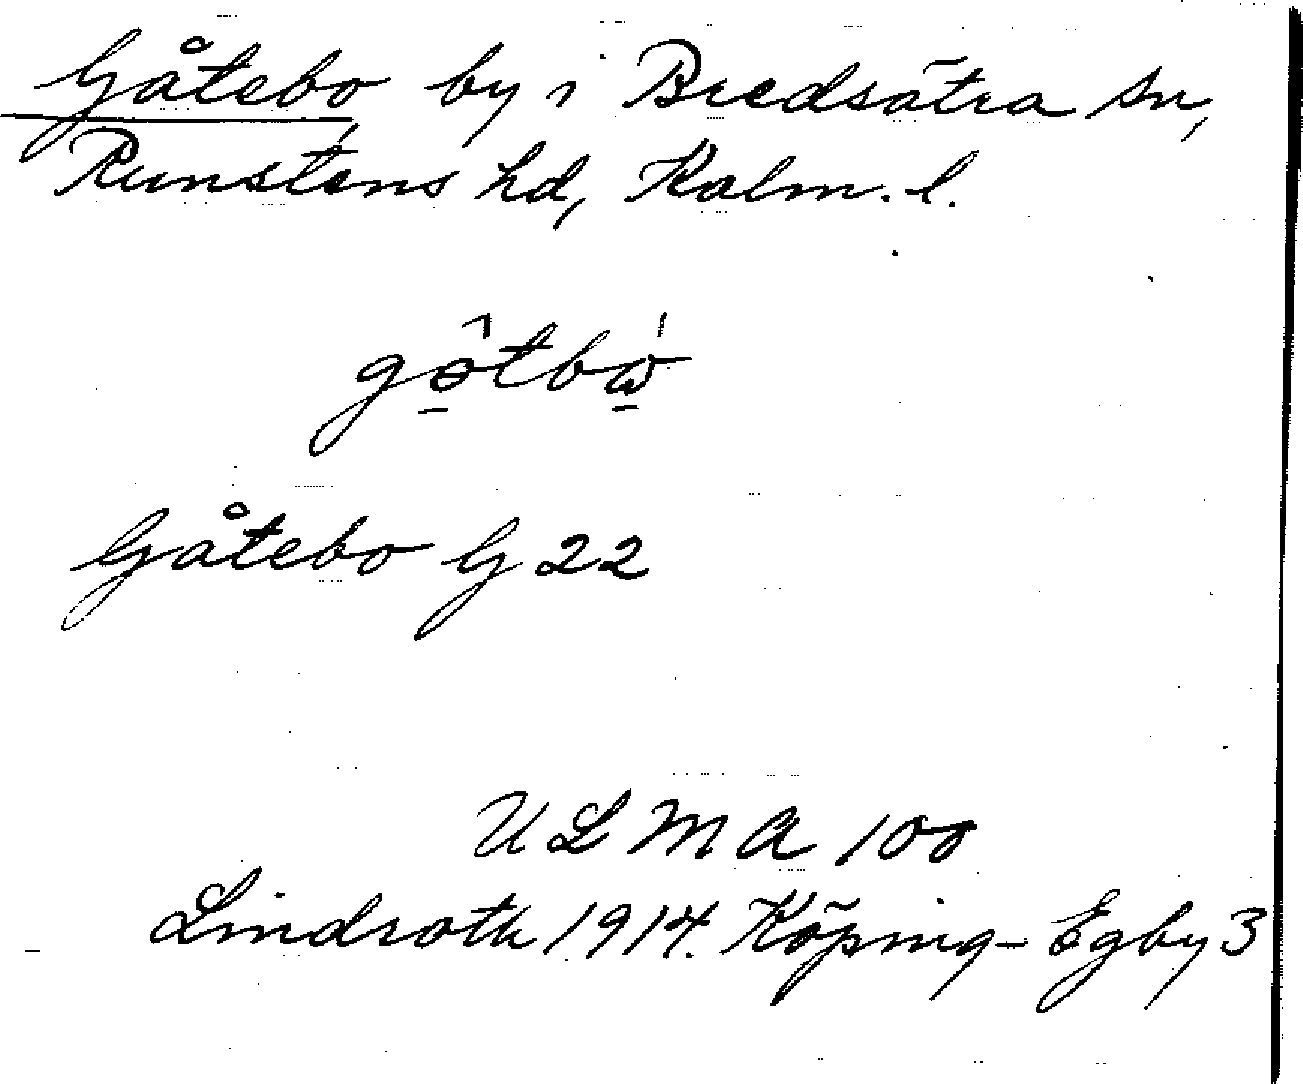 Gåtebo by i Bredsätra sn,
Runstens hd, Kalm. l.
Gåtebo G 22
ULMA 100
Lindroth 1914. Köping-Egby 3